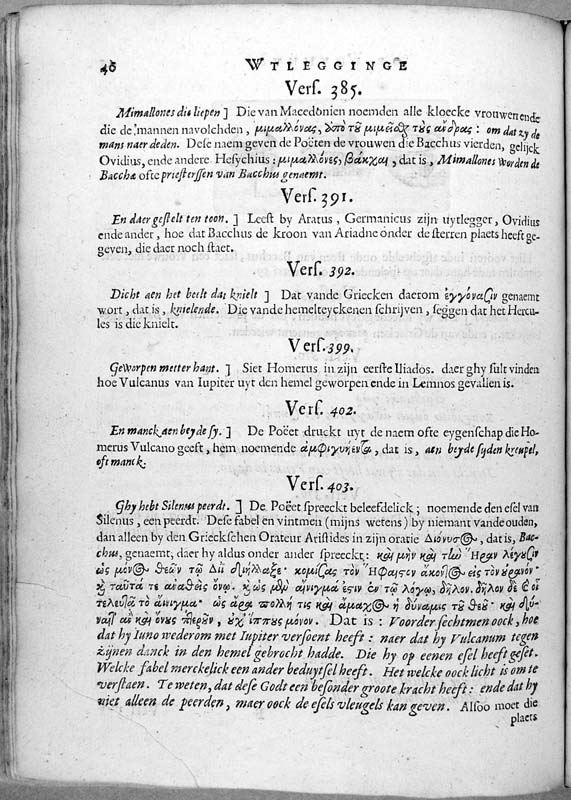 46 WTLEGGINGE
Vers. 385.
Mimallones die liepen ] Die van Macedonien noemden alle kloecke vrouwen ende
die de mannen navolchden, μιμαλλόνας, ὑπὸ τοῦ μιμεῖσθαι τοὺς ἄνδρας: om dat zy de
mans naer deden. Dese naem geven de Poëten de vrouwen die Bacchus vierden, gelijck
Ovidius, ende andere Hesychius: μιμαλλόνες, βάκχαι, dat is, Mimallones worden de
Bacchæ ofte priesterssen van Bacchus genaemt.
Vers. 391.
En daer gestelt ten toon. ] Leest by Aratus, Germanicus zijn uytlegger, Ovidius
ende ander, hoe dat Bacchus de kroon van Ariadne onder de sterren plaets heeft ge-
geven, die daer noch staet.
Vers. 392.
Dicht aen het beelt dat knielt ] Dat vande Griecken daerom ἐγγόνασιν genaemt
wort, dat is, knielende. Die vande hemelteyckenen schrijven, seggen dat het Hercu-
les is die knielt.
Vers. 399.
Geworpen metter hant. ] Siet Homerus in zijn eerste Iliados. daer ghy sult vinden
hoe Vulcanus van Iupiter uyt den hemel geworpen ende in Lemnos gevallen is.
Vers. 402.
En manck aen beyde sy. ] De Poëet druckt uyt de naem ofte eygenschap die Ho-
merus Vulcano geeft, hem noemende ἀμφιγυήεντα, dat is, aen beyde syden kreupel,
oft manck.
Vers. 403.
Ghy hebt Silenus peerdt. ] De Poëet spreeckt beleefdelick; noemende den esel van
Silenus, een peerdt. Dese fabel en vintmen (mijns wetens) by niemant vande ouden,
dan alleen by den Griekschen Orateur Aristides in zijn oratie Διόνυσος, dat is, Bac-
chus, genaemt, daer hy aldus onder ander spreeckt: καὶ μὴν καὶ τὴν Ἥραν λέγουσιν
ὡς μόνος θεῶν τῷ Διὶ συνήλλαξε· κομίσας τὸν Ἥφαιστον ἄκοντος εἰς τὸν οὐρανόν·
καὶ ταῦτά τε ἀναθεὶς ὄνῳ. καὶ ὡς μὲν αἴνιγμά ἐστιν ἐν τῷ λόγῳ, δῆλον. δῆλον δὲ καὶ οἷ
τελευτᾷ τὸ αἴνιγμα· ὡς ἄρα πολλή τις καὶ ἄμαχος ἡ δύναμις τοῦ θεοῦ· καὶ δύ-
ναιτ' ἂν καὶ ὄνους πτεροῦν, οὐχ ἵππους μόνον. Dat is: Voorder sechtmen oock, hoe
dat hy Iuno wederom met Iupiter versoent heeft: naer dat hy Vulcanum tegen
zijnen danck in den hemel gebrocht hadde. Die hy op eenen esel heeft geset.
Welcke fabel merckelick een ander beduytsel heeft. Het welcke oock licht is om te
verstaen. Te weten, dat dese Godt een besonder groote kracht heeft: ende dat hy
niet alleen de peerden, maer oock de esels vleugels kan geven. Alsoo moet die
plaets